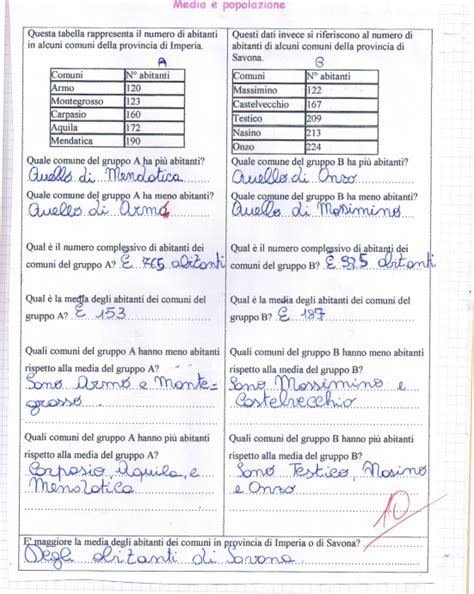 Media e popolazione
Questa tabella rappresenta il numero di abitanti
in alcuni comuni della provincia di Imperia.
A
Comuni N° abitanti
Armo 120
Montegrosso 123
Carpasio 160
Aquila 172
Mendatica 190
Quale comune del gruppo A ha più abitanti?
Quello di Mendatica
Quale comune del gruppo A ha meno abitanti?
Quello di Armo
Qual è il numero complessivo di abitanti dei
comuni del gruppo A? È 765 abitanti
Qual è la media degli abitanti dei comuni del
gruppo A? È 153
Quali comuni del gruppo A hanno meno abitanti
rispetto alla media del gruppo A?
Sono Armo e Monte=
grosso
Quali comuni del gruppo A hanno più abitanti
rispetto alla media del gruppo A?
Carpasio, Aquila, e
Mendatica
Questi dati invece si riferiscono al numero di
abitanti di alcuni comuni della provincia di
Savona.
B
Comuni N° abitanti
Massimino 122
Castelvecchio 167
Testico 209
Nasino 213
Onzo 224
Quale comune del gruppo B ha più abitanti?
Quello di Onzo
Quale comune del gruppo B ha meno abitanti?
Quello di Massimino
Qual è il numero complessivo di abitanti dei
comuni del gruppo B? È 935 abitanti
Qual è la media degli abitanti dei comuni del
gruppo B? È 187
Quali comuni del gruppo B hanno meno abitanti
rispetto alla media del gruppo B?
Sono Massimino e
Castelvecchio
Quali comuni del gruppo B hanno più abitanti
rispetto alla media del gruppo B?
Sono Testico, Nasino
e Onzo
10
E' maggiore la media degli abitanti dei comuni in provincia di Imperia o di Savona?
Degli abitanti di Savona